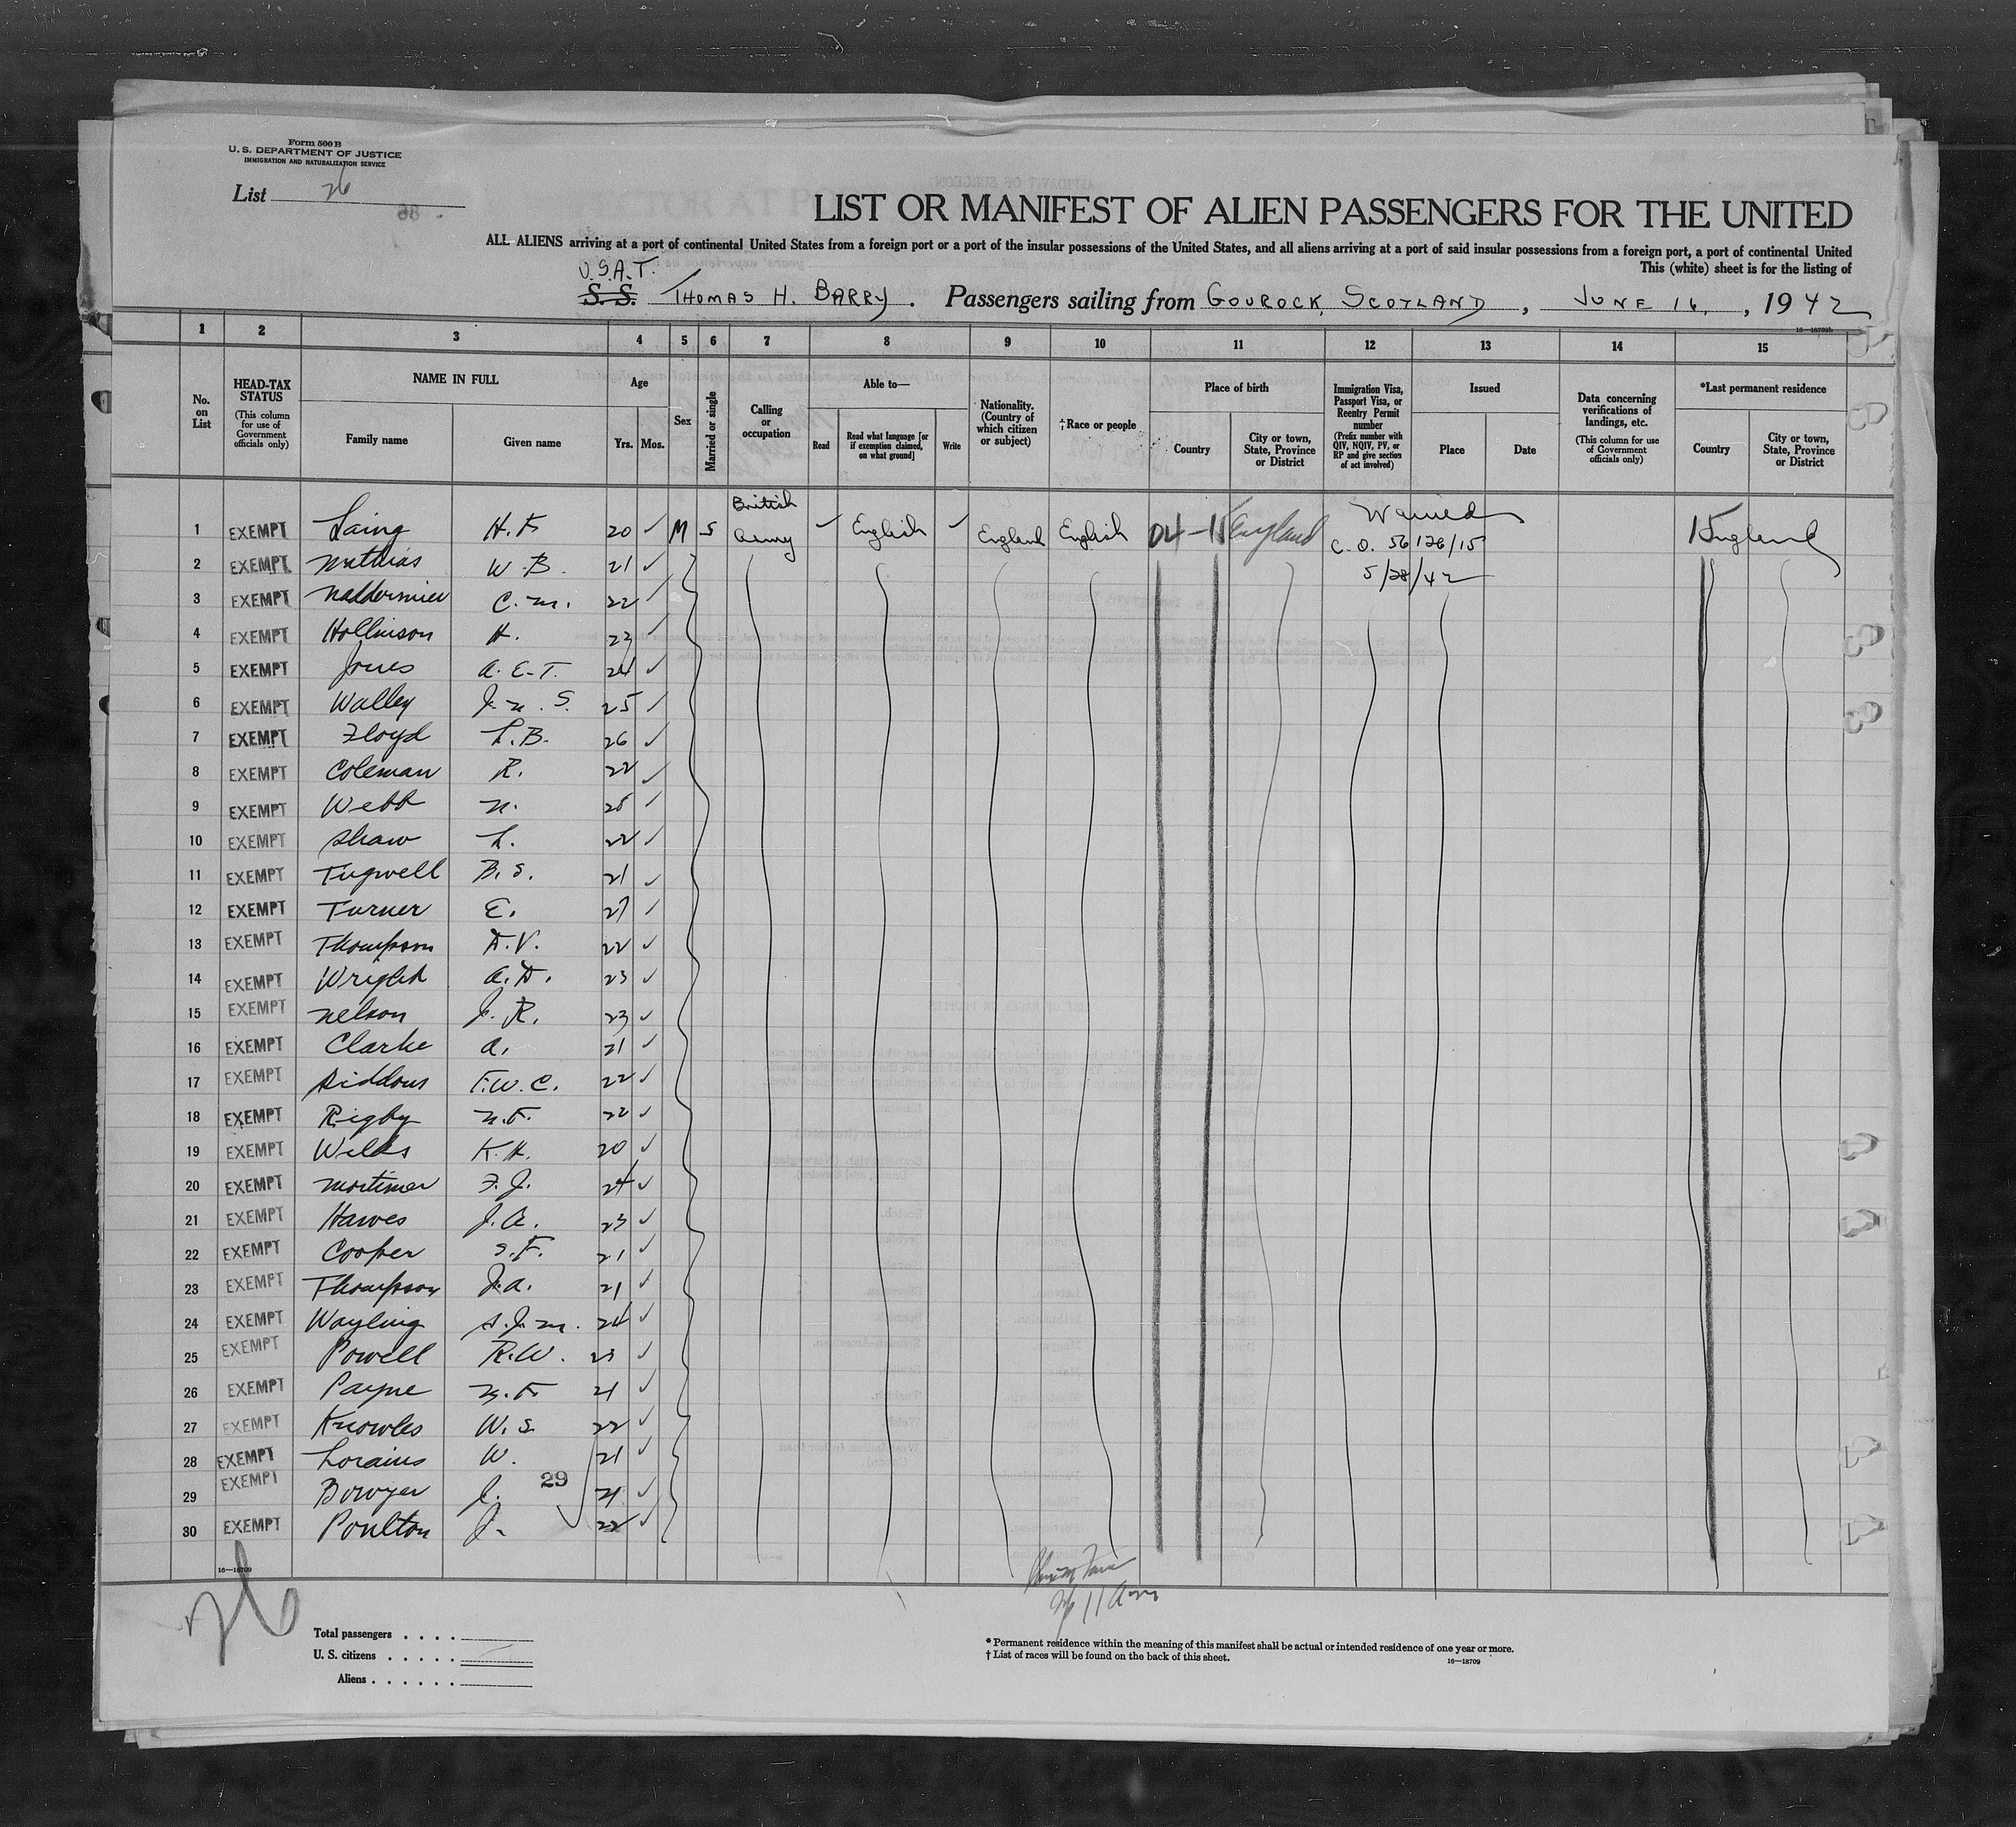 Form 500 B
U. S. DEPARTMENT OF JUSTICE
IMMIGRATION AND NATURALIZATION SERVICE
List 26
LIST OR MANIFEST OF ALIEN PASSENGERS FOR THE UNITED
ALL ALIENS arriving at a port of continental United States from a foreign port or a port of the insular possessions of the United States, and all aliens arriving at a port of said insular possessions from a foreign port, a port of continental United
This (white) sheet is for the listing of
U.S.A.T.
S. S. THOMAS H. BARRY. Passengers sailing from GOUROCK, SCOTLAND, JUNE 16, 1942
16—18709b
1 2 3 4 5 6 7 8 9 10 11 12 13 14 15
No. on List
HEAD-TAX STATUS (This column for use of Government officials only)
NAME IN FULL
Family name Given name
Age
Yrs. Mos.
Sex
Married or single
Calling or occupation
Able to—
Read
Read what language [or if exemption claimed, on what ground]
Write
Nationality. (Country of which citizen or subject)
†Race or people
Place of birth
Country
City or town, State, Province or District
Immigration Visa, Passport Visa, or Reentry Permit number (Prefix number with QIV, NQIV, PV, or RP and give section of act involved)
Issued
Place Date
Data concerning verifications of landings, etc. (This column for use of Government officials only)
*Last permanent residence
Country
City or town, State, Province or District
1 EXEMPT Laing H. F. 20 M S British Army English England English 04-1 England Waived England
C. O. 56126/15
5/28/42
2 EXEMPT Matthias W. B. 21
3 EXEMPT C. M. 22
4 EXEMPT Hollinson H. 23
5 EXEMPT Jones A. E. T. 24
6 EXEMPT Walley J. N. S. 25
7 EXEMPT Floyd L. B. 26
8 EXEMPT Coleman R. 22
9 EXEMPT Webb N. 25
10 EXEMPT Shaw L. 22
11 EXEMPT Tugwell B. S. 21
12 EXEMPT Turner E. 27
13 EXEMPT Thompson D. V. 22
14 EXEMPT Wright A. D. 23
15 EXEMPT Nelson J. R. 23
16 EXEMPT Clarke A. 21
17 EXEMPT Siddons F. W. C. 22
18 EXEMPT Rigby N. F. 22
19 EXEMPT Wilds K. H. 20
20 EXEMPT Mortimer F. J. 24
21 EXEMPT Hawes J. A. 23
22 EXEMPT Cooper S. F. 21
23 EXEMPT Thompson J. A. 21
24 EXEMPT Wayling S. J. M. 24
25 EXEMPT Powell R. W. 23
26 EXEMPT Payne N. F. 21
27 EXEMPT Knowles W. S. 22
28 EXEMPT Lorains W. 21
29 EXEMPT Bowyer J. 29 21
30 EXEMPT Poulton J. 22
16—18709
26
11 Am
Total passengers
U. S. citizens
Aliens
* Permanent residence within the meaning of this manifest shall be actual or intended residence of one year or more.
† List of races will be found on the back of this sheet.
16—18709